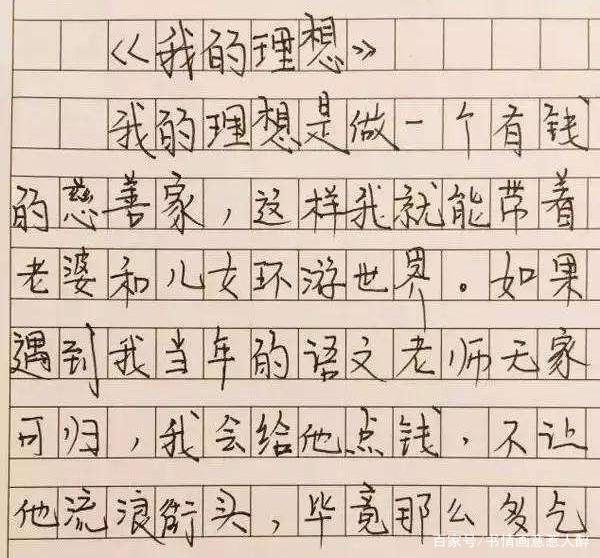 《我的理想》
我的理想是做一个有钱
的慈善家，这样我就能带着
老婆和儿女环游世界。如果
遇到我当年的语文老师无家
可归，我会给他点钱，不让
他流浪街头，毕竟那么多乞
百家号/书情画意惹人醉